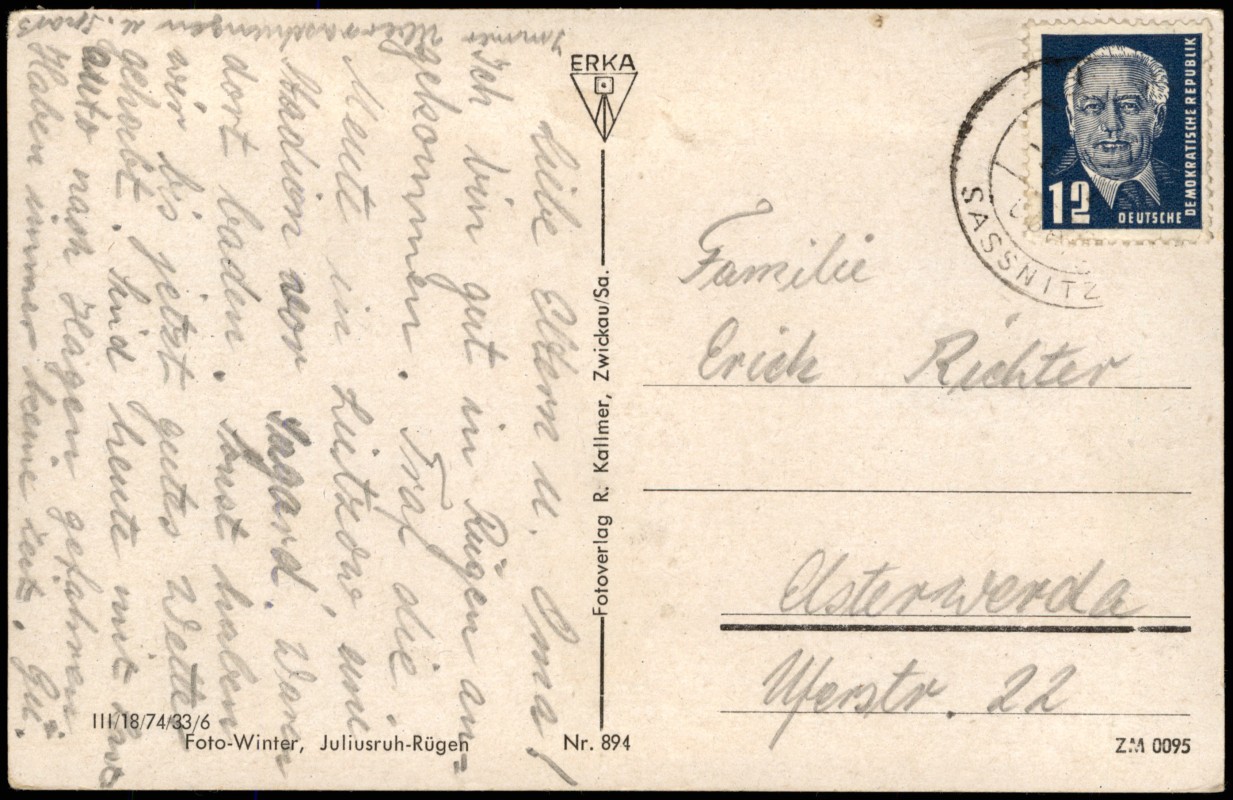 Liebe Eltern u. Oma!
Ich bin gut in Rügen an-
gekommen. Traf die
Meute in Lietzow, und
Stadion vor Sagard. Waren
dort baden. Sonst haben
wir bis jetzt gutes Wetter
gehabt. Sind heute mit
Auto nach Hagen gefahren
Haben immer keine Zeit.
Immer Überraschungen u. Spass
ERKA
Fotoverlag R. Kallmer, Zwickau/Sa.
12
DEUTSCHE
DEMOKRATISCHE REPUBLIK
SASSNITZ
Familie
Erich Richter
Elsterwerda
Uferstr. 22
III/18/74/33/6
Foto-Winter, Juliusruh-Rügen
Nr. 894
ZM 0095